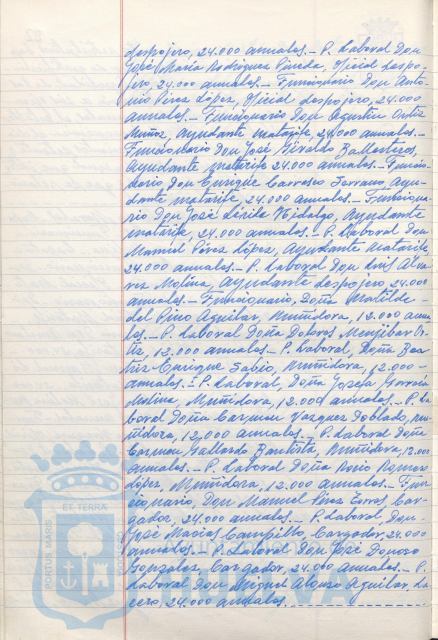 despojero, 24.000 anuales.- P. Laboral Don
José María Rodríguez Pineda, Oficial despo-
jero, 24.000 anuales.- Funcionario Don Anto-
nio Pérez López, Oficial despojero, 24.000
anuales.- Funcionario Don Agustín Ortiz
Muñoz, Ayudante matarife, 24.000 anuales.-
Funcionario Don José Giraldo Ballesteros,
Ayudante matarife 24.000 anuales.- Funcio-
nario Don Enrique Carrasco Serrano, Ayu-
dante matarife, 24.000 anuales.- Funciona-
rio Don José Hidalgo, Ayudante
matarife, 24.000 anuales.- P. Laboral Don
Manuel Pérez López, Ayudante Matarife,
24.000 anuales.- P. Laboral Don Luis Alva-
rez Molina, Ayudante despojero 24.000
anuales.- Funcionario, Doña Matilde
del Pino Aguilar, Muñidora, 12.000 anua-
les.- P. Laboral Doña Dolores Menjibar Or-
tiz, 12.000 anuales.- P. Laboral, Doña Bea-
triz Enrique Sabio, Muñidora, 12.000 -
anuales.- P. Laboral, Doña Josefa
Molina, Muñidora, 12.000 anuales.- P. La-
boral Doña Carmen Vazquez Doblado, Mu-
ñidora, 12.000 anuales.- P. Laboral Doña
Carmen Gallardo Bautista, Muñidora, 12.000
anuales.- P. Laboral Doña Rocío Romero
López, Muñidora, 12.000 anuales.- Fun-
cionario, Don Manuel Pérez Car-
gador, 24.000 anuales.- P. Laboral Don
José Macías Campillo, Cargador, 24.000
anuales.- P. Laboral Don José Donoso
Gonzalez, Cargador, 24.000 anuales.- P.
Laboral Don Miguel Alonso Aguilar, La-
cero, 24.000 anuales.
PORTUS MARIS
ET TERRA